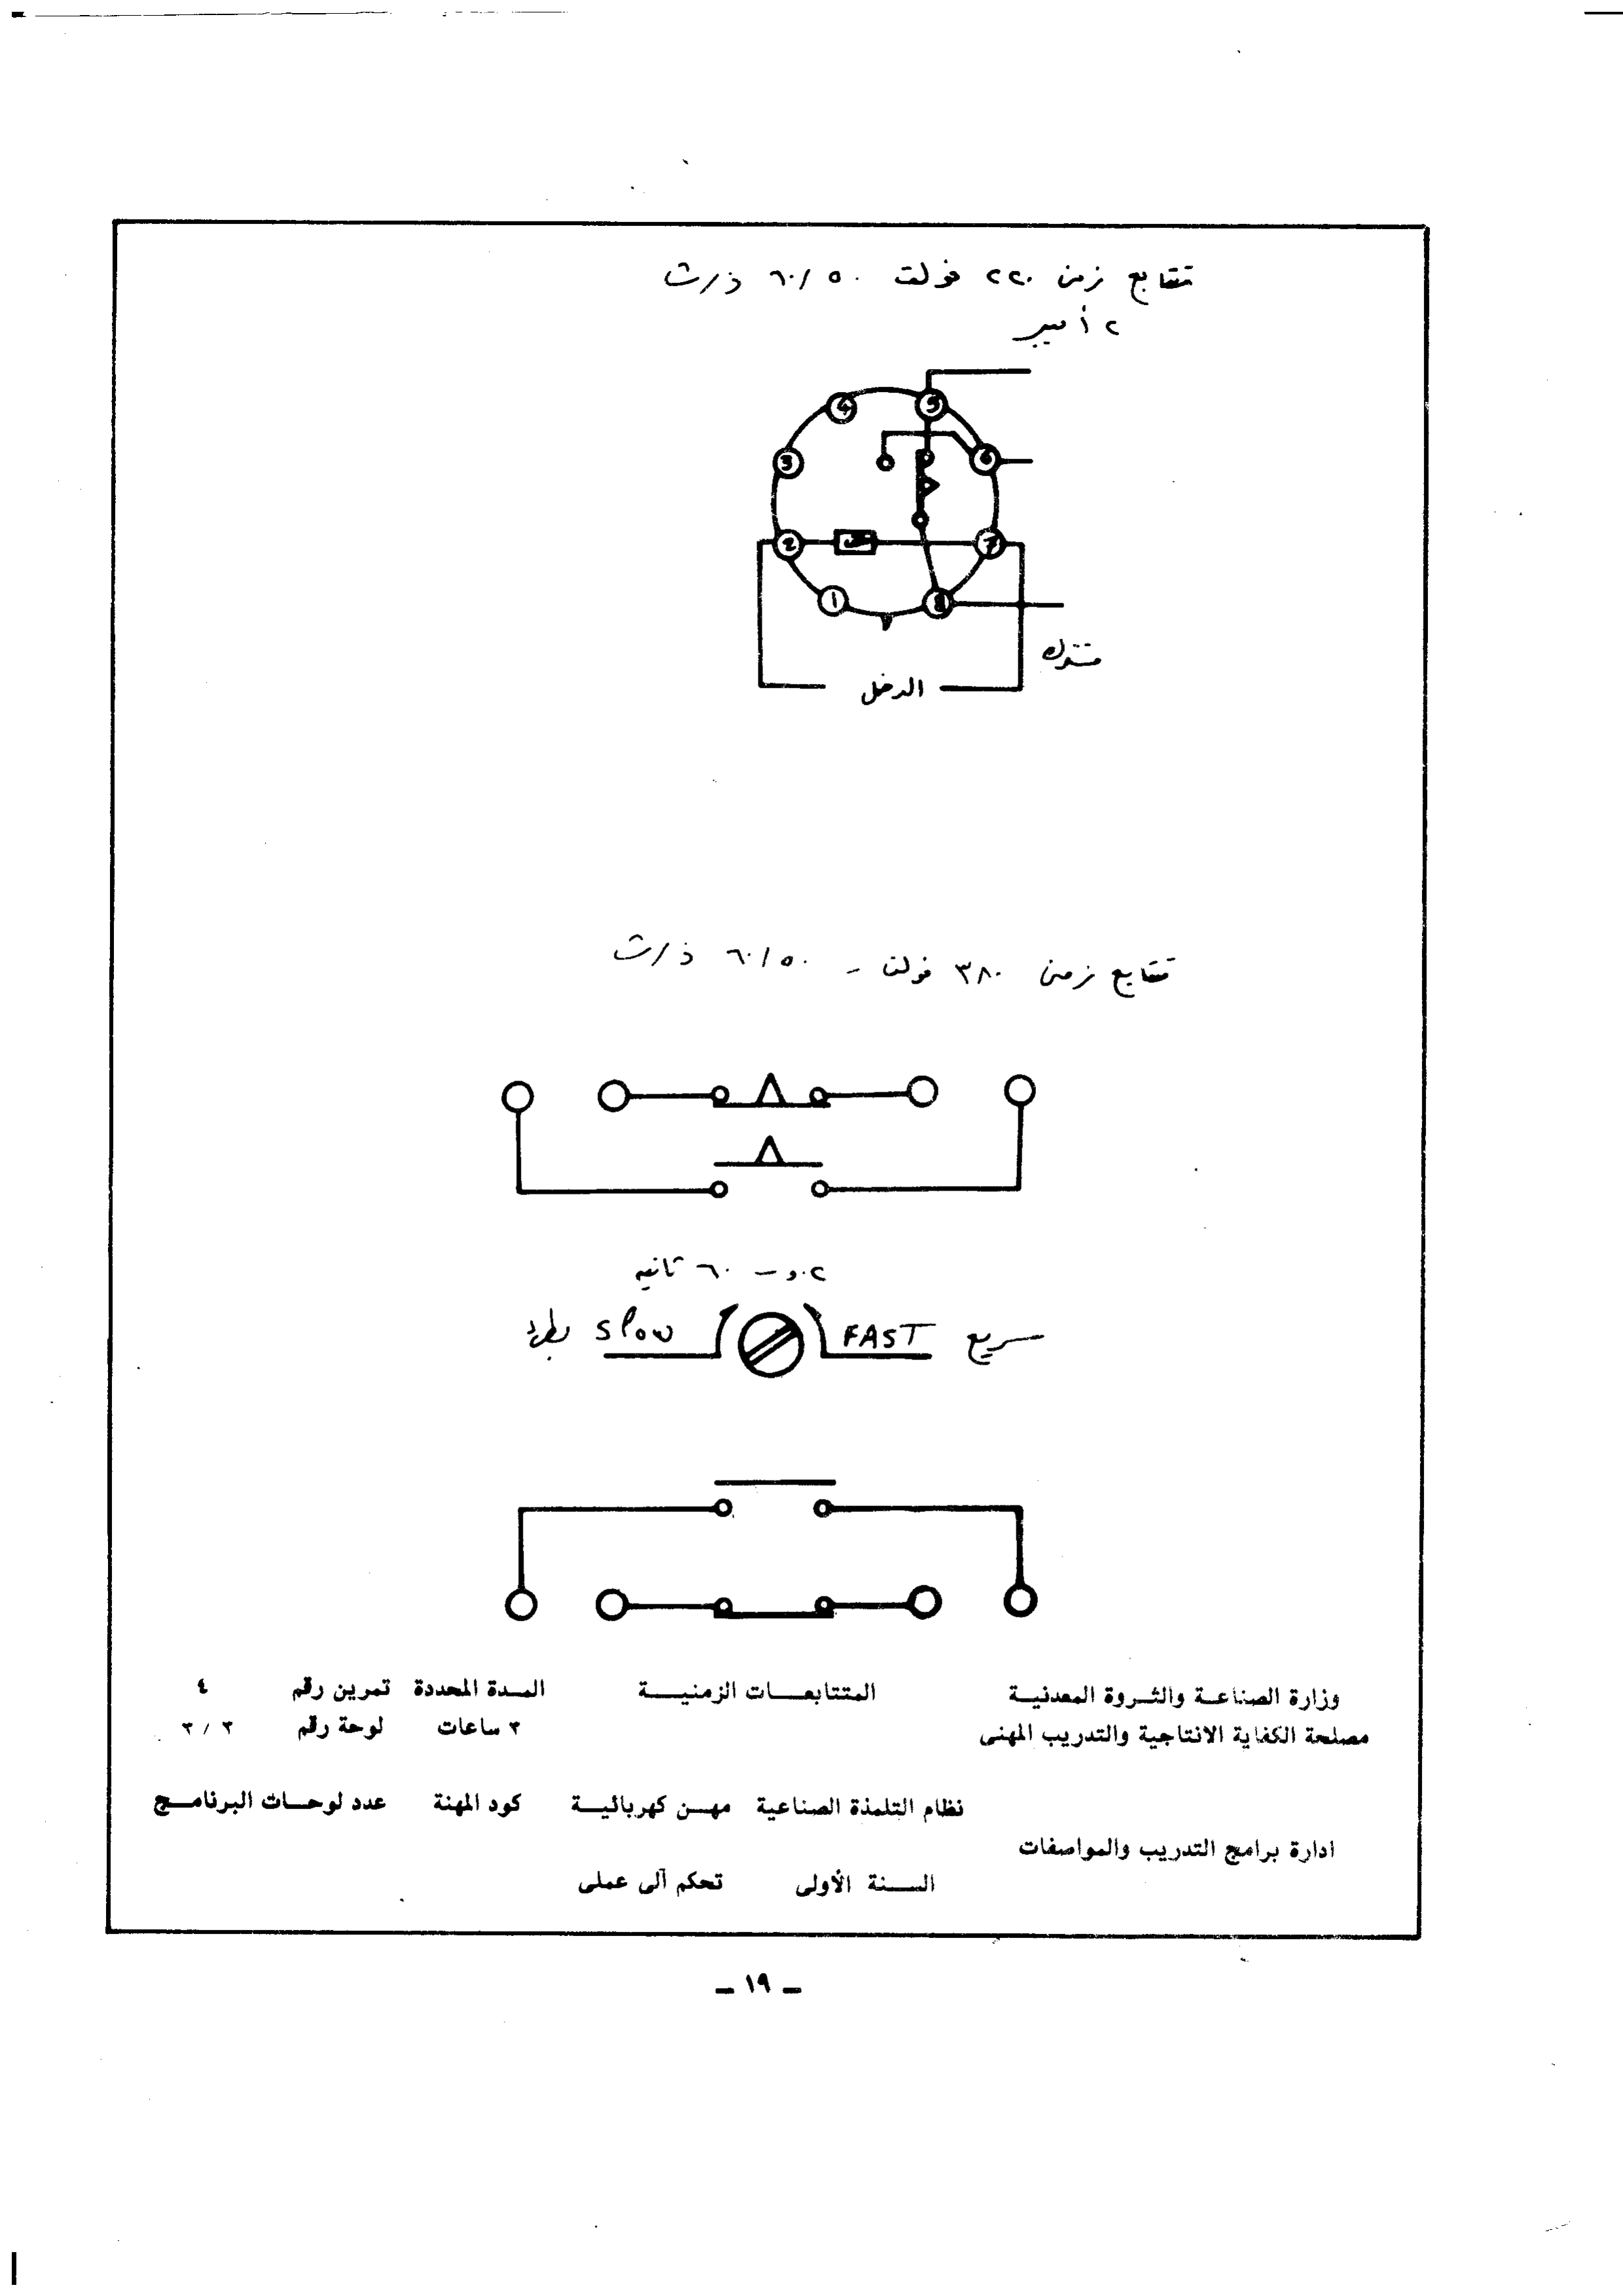 متتابع زمن ٢٢٠ فولت ٥٠/٦٠ ذ/ث
٢ أمبير
4 5
3 6
2 7
1 8
مشترك
الدخل
متتابع زمنى ٣٨٠ فولت - ٥٠/٦٠ ذ/ث
٠.٢ - ٦٠ ثانيه
سريع FAST Slow بطئ
وزارة الصناعة والثروة المعدنية المتتابعات الزمنية المدة المحددة تمرين رقم ٤
مصلحة الكفاية الانتاجية والتدريب المهنى ٣ ساعات لوحة رقم ٣ / ٣
نظام التلمذة الصناعية مهن كهربائية كود المهنة عدد لوحات البرنامج
ادارة برامج التدريب والمواصفات
السنة الأولى تحكم آلى عملى
- ١٩ -